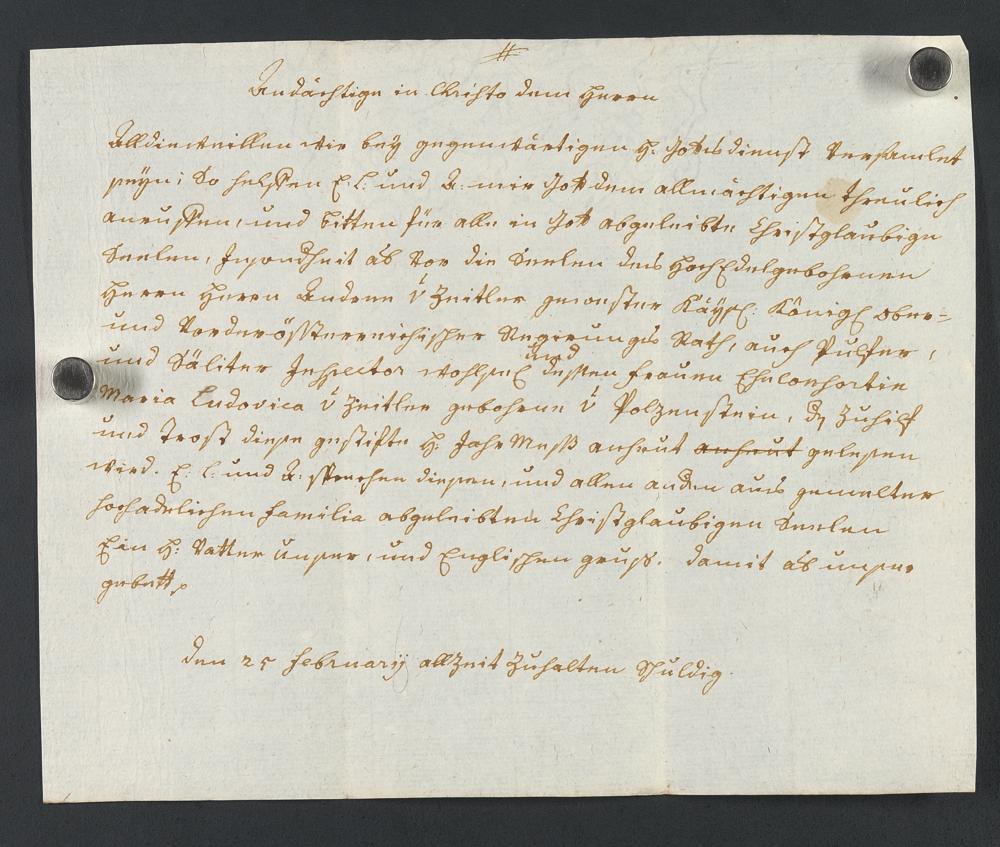 #
Andächtige in Christo dem Herrn
Alldieweillen wir bey gegenwärtigen H. Gottsdienst versamlet
seyn; So helffen E: L: und A: mir Gott dem allmächtigen threulich
anruffen, und bitten für alle in Gott abgeleibte Christglaubige
Seelen, Insondheit ab vor die Seelen des HochEdelgebohrnen
Herrn Herrn Andree v Zeitler gewester Kaÿsl: Königl Ober=
und Vorderössterreichischer Regierungs Rath, auch Pulfer,
und Säliter Inspector wohlsel und dessen Frauen Eheconsortin
Maria Ludovica v Zeitler gebohrne v Polzenstein, dz Zuhilf
und Trost diese gestifte H: Jahr Meß anheut anheut gelesen
wird. E: L: und A: sprechen diesen, und allen anden aus gemelter
hochadelichen Familia abgeleibten Christglaubigen Seelen
Ein H: Vatter Unser, und Englischen gruß. damit ab unser
gebett
den 25 Februarij allzeit Zuhalten Schuldig.